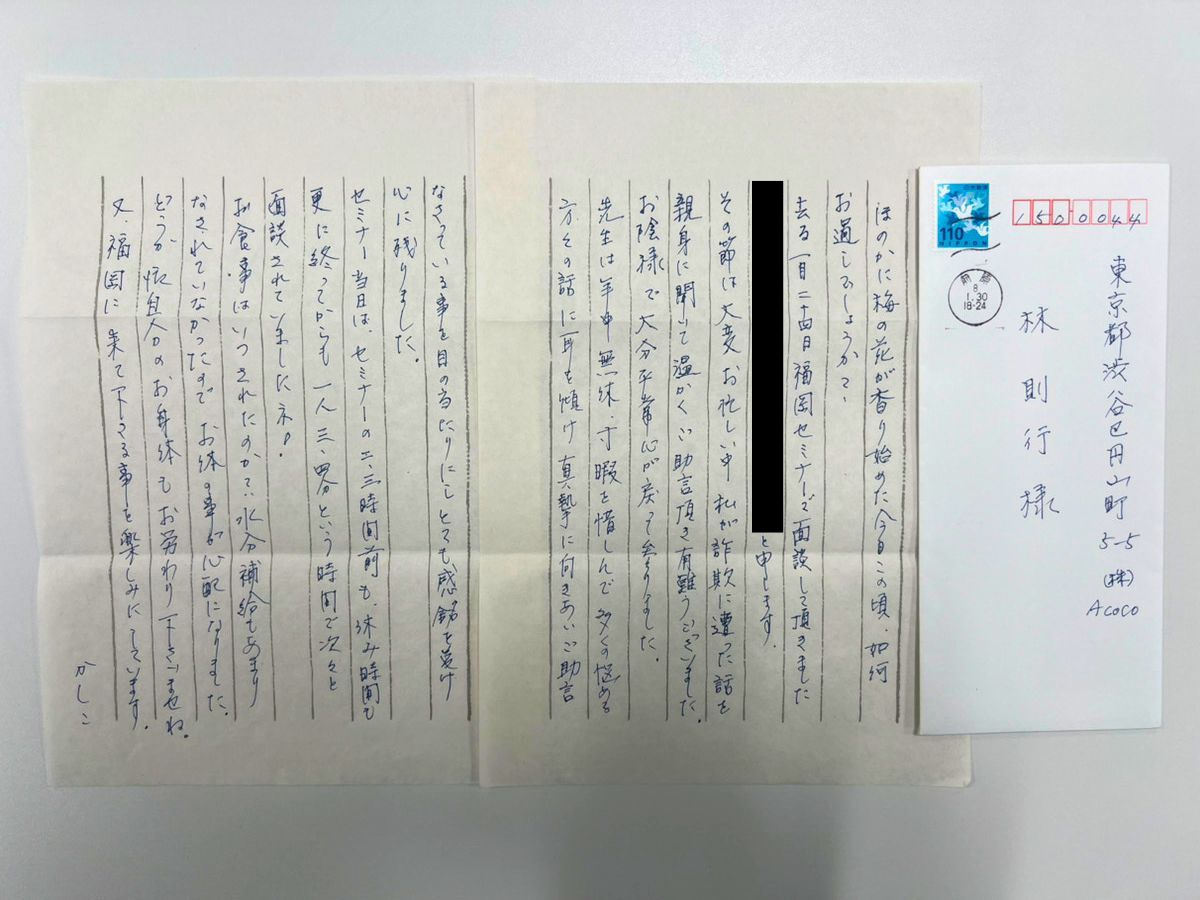 日本郵便
110
NIPPON
8.
1.30
18-24
1500044
東京都渋谷区円山町5-5
(株)Acoco
林則行様
ほのかに梅の花が香り始めた今日この頃、如何
お過しでしょうか?
去る一月二十四日福岡セミナーで面談して頂きました
と申します。
その節は大変お忙しい中私が詐欺に遭った話を
親身に聞いて温かくご助言頂き有難うございました。
お陰様で大分平常心が戻って参りました。
先生は年中無休寸暇を惜しんで多くの悩める
方々の話に耳を傾け真摯に向きあいご助言
なさっている事を目の当たりにしとても感銘を受け
心に残りました。
セミナー当日は、セミナーの二、三時間前も、休み時間も
更に終ってからも一人三、四分という時間で次々と
面談されていましたネ!
お食事はいつされたのか?水分補給もあまり
なされていなかったのでお体の事が心配になりました。
どうかご自分のお身体もお労わり下さいませね。
又、福岡に来て下さる事を楽しみにしています。
かしこ